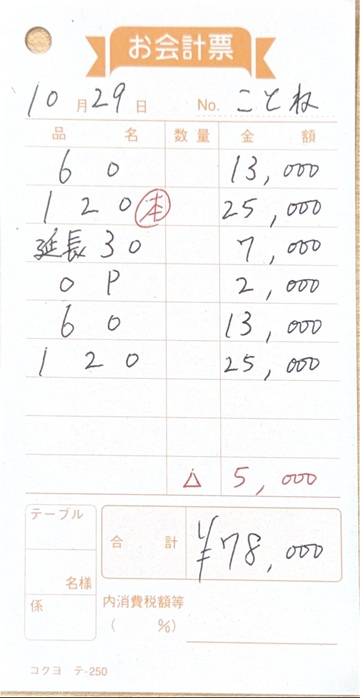 お会計票
10月29日 No. ことね
品名 数量 金額
60 13,000
120 本 25,000
延長30 7,000
OP 2,000
60 13,000
120 25,000
△ 5,000
テーブル
名様
係
合計 ¥78,000
内消費税額等
( %)
コクヨ テ-250